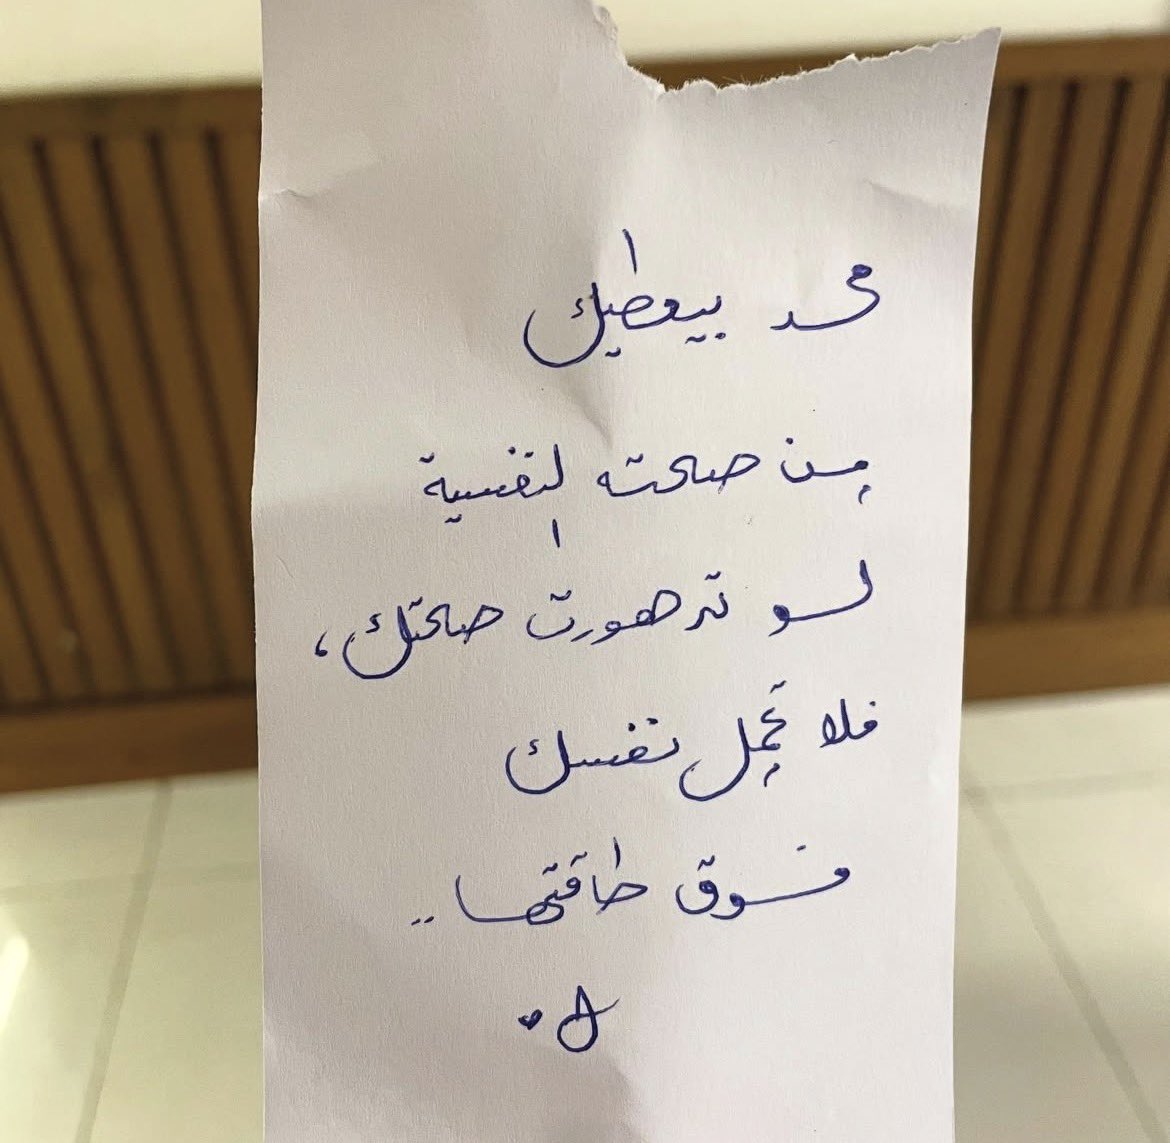 محد بيعطيك
من صحته لنفسية
لو تدهورت صحتك،
فلا تحمل نفسك
فوق طاقتها..